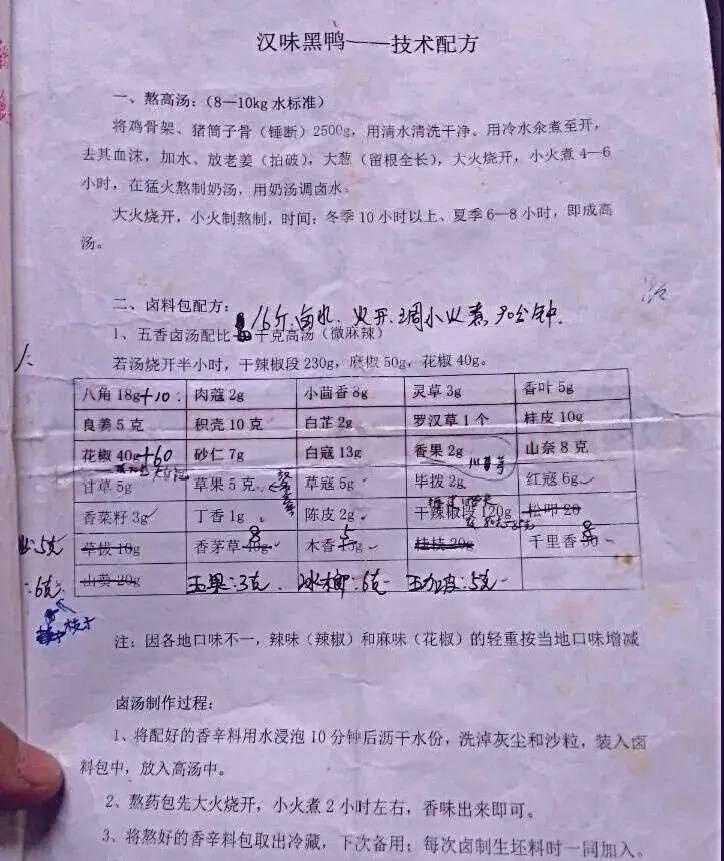 汉味黑鸭——技术配方
一、熬高汤：（8—10kg 水标准）
将鸡骨架、猪筒子骨（锤断）2500g，用清水清洗干净。用冷水汆煮至开，
去其血沫，加水、放老姜（拍破），大葱（留根全长），大火烧开，小火煮 4—6
小时，在猛火熬制奶汤，用奶汤调卤水。
大火烧开，小火制熬制，时间：冬季 10 小时以上、夏季 6—8 小时，即成高
汤。
二、卤料包配方：
16斤卤水. 火开.调小火煮90分钟.
1、五香卤汤配比 千克高汤（微麻辣）
若汤烧开半小时，干辣椒段 230g，麻椒 50g，花椒 40g。
八角 18g+10 肉蔻 2g 小茴香 8g 灵草 3g 香叶 5g
良姜 5 克 积壳 10 克 白芷 2g 罗汉草 1 个 桂皮 10g
花椒 40g+60 砂仁 7g 白寇 13g 香果 2g 山奈 8 克
甘草 5g 草果 5 克 草寇 5g 毕拨 2g 红寇 6g
香菜籽 3g 丁香 1g 陈皮 2g 干辣椒段 120g 松明 20
5克 草拔 10g 香茅草 40g 8 木香 15g 5 桂枝 20g 千里香 30 8
:6克 山黄 20g 玉果:3克. 冰榔:6克- 玉加皮:5克-
枝子
注：因各地口味不一，辣味（辣椒）和麻味（花椒）的轻重按当地口味增减
卤汤制作过程：
1、将配好的香辛料用水浸泡 10 分钟后沥干水份，洗淖灰尘和沙粒，装入卤
料包中，放入高汤中。
2、熬药包先大火烧开，小火煮 2 小时左右，香味出来即可。
3、将熬好的香辛料包取出冷藏，下次备用；每次卤制生坯料时一同加入。